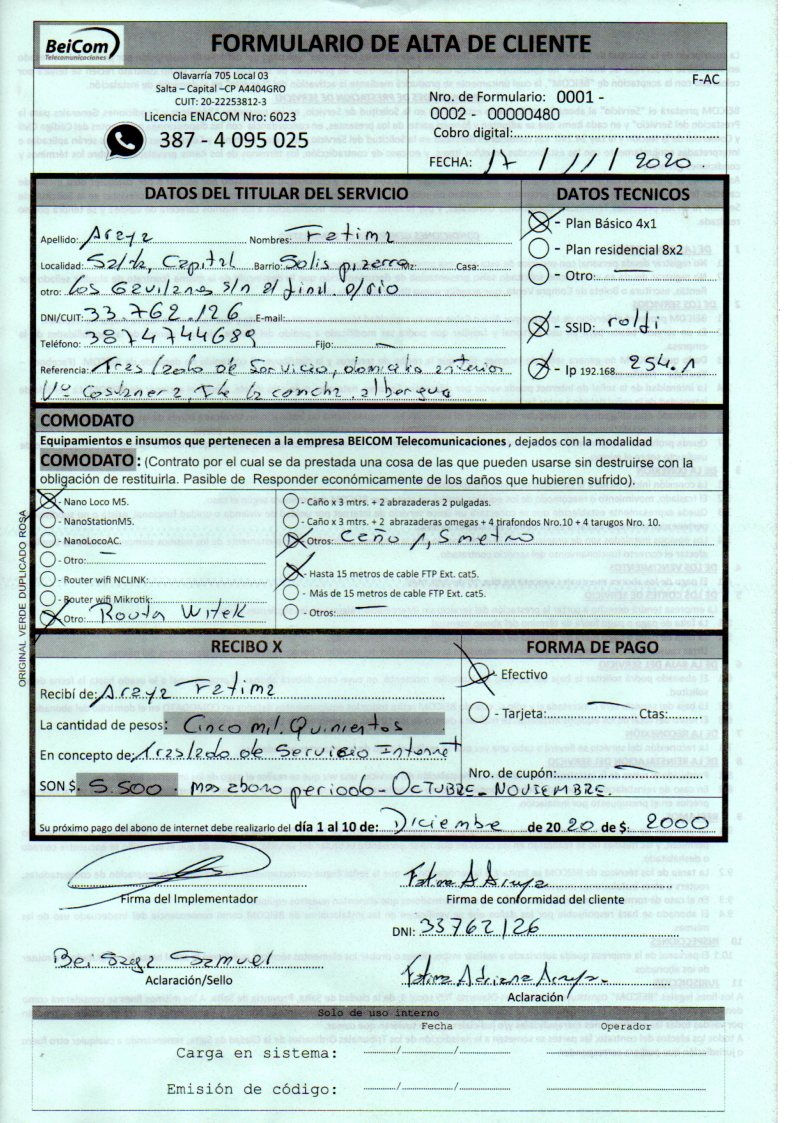 BeiCom
Telecomunicaciones
FORMULARIO DE ALTA DE CLIENTE
Olavarría 705 Local 03
Salta – Capital –CP A4404GRO
CUIT: 20-22253812-3
Licencia ENACOM Nro: 6023
387 - 4 095 025
F-AC
Nro. de Formulario: 0001 -
0002 - 00000480
Cobro digital:
FECHA: 17 / 11 / 2020.
DATOS DEL TITULAR DEL SERVICIO
Apellido: Araya Nombres: Fatima
Localidad: Salta, Capital Barrio: Solis pizarro Mz: Casa:
otro: Los Gavilanes s/n al find. p/rio
DNI/CUIT: 33.762.126 E-mail:
Teléfono: 3874744689 Fijo: —
Referencia: Traslado de Servicio, domicilio anterior
Vº Costanera, Fte la concha albergue
DATOS TECNICOS
- Plan Básico 4x1
- Plan residencial 8x2
- Otro: —
- SSID: rolfi
- Ip 192.168. 254.1
COMODATO
Equipamientos e insumos que pertenecen a la empresa BEICOM Telecomunicaciones, dejados con la modalidad
COMODATO: (Contrato por el cual se da prestada una cosa de las que pueden usarse sin destruirse con la
obligación de restituirla. Pasible de Responder económicamente de los daños que hubieren sufrido).
- Nano Loco M5.
- NanoStationM5.
- NanoLocoAC.
- Otro: —
- Router wifi NCLINK:
- Router wifi Mikrotik:
Otro: Routa Witek
- Caño x 3 mtrs. + 2 abrazaderas 2 pulgadas.
- Caño x 3 mtrs. + 2 abrazaderas omegas + 4 tirafondos Nro.10 + 4 tarugos Nro. 10.
Otros: Caño 1,5 metro
- Hasta 15 metros de cable FTP Ext. cat5.
- Más de 15 metros de cable FTP Ext. cat5.
- Otros: —
ORIGINAL VERDE DUPLICADO ROSA
RECIBO X
Recibí de: Araya Fatima
La cantidad de pesos: Cinco mil. Quinientos
En concepto de: Traslado de Servicio Internet
SON $. 5.500. Mas abono periodo - OCTUBRE - NOVIEMBRE.
FORMA DE PAGO
- Efectivo
- Tarjeta: — Ctas:
Nro. de cupón: —
Su próximo pago del abono de internet debe realizarlo del día 1 al 10 de: Diciembre de 20 20 de $: 2000
Firma del Implementador
Fatima A Araya
Firma de conformidad del cliente
DNI: 33762126
Bei Saga Samuel
Aclaración/Sello
Fatima Adriana Araya.
Aclaración
Solo de uso interno
Fecha Operador
Carga en sistema: / /
Emisión de código: / /